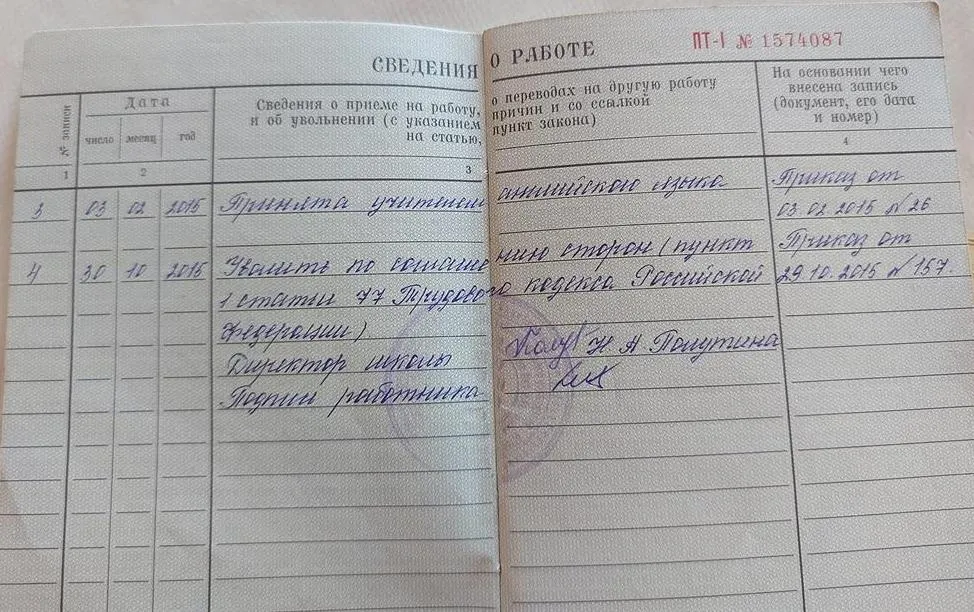 СВЕДЕНИЯ О РАБОТЕ
ПТ-I № 1574087
№ записи
Дата
число
месяц
год
Сведения о приеме на работу, о переводах на другую работу
и об увольнении (с указанием причин и со ссылкой
на статью, пункт закона)
На основании чего
внесена запись
(документ, его дата
и номер)
1 2 3 4
3 03 02 2015 Принята учителем английского языка Приказ от
03.02.2015 № 26
4 30 10 2015 Уволить по соглашению сторон (пункт Приказ от
1 статьи 77 Трудового кодекса Российской 29.10.2015 № 157.
Федерации).
Директор школы Н А Полутина
Подпись работника